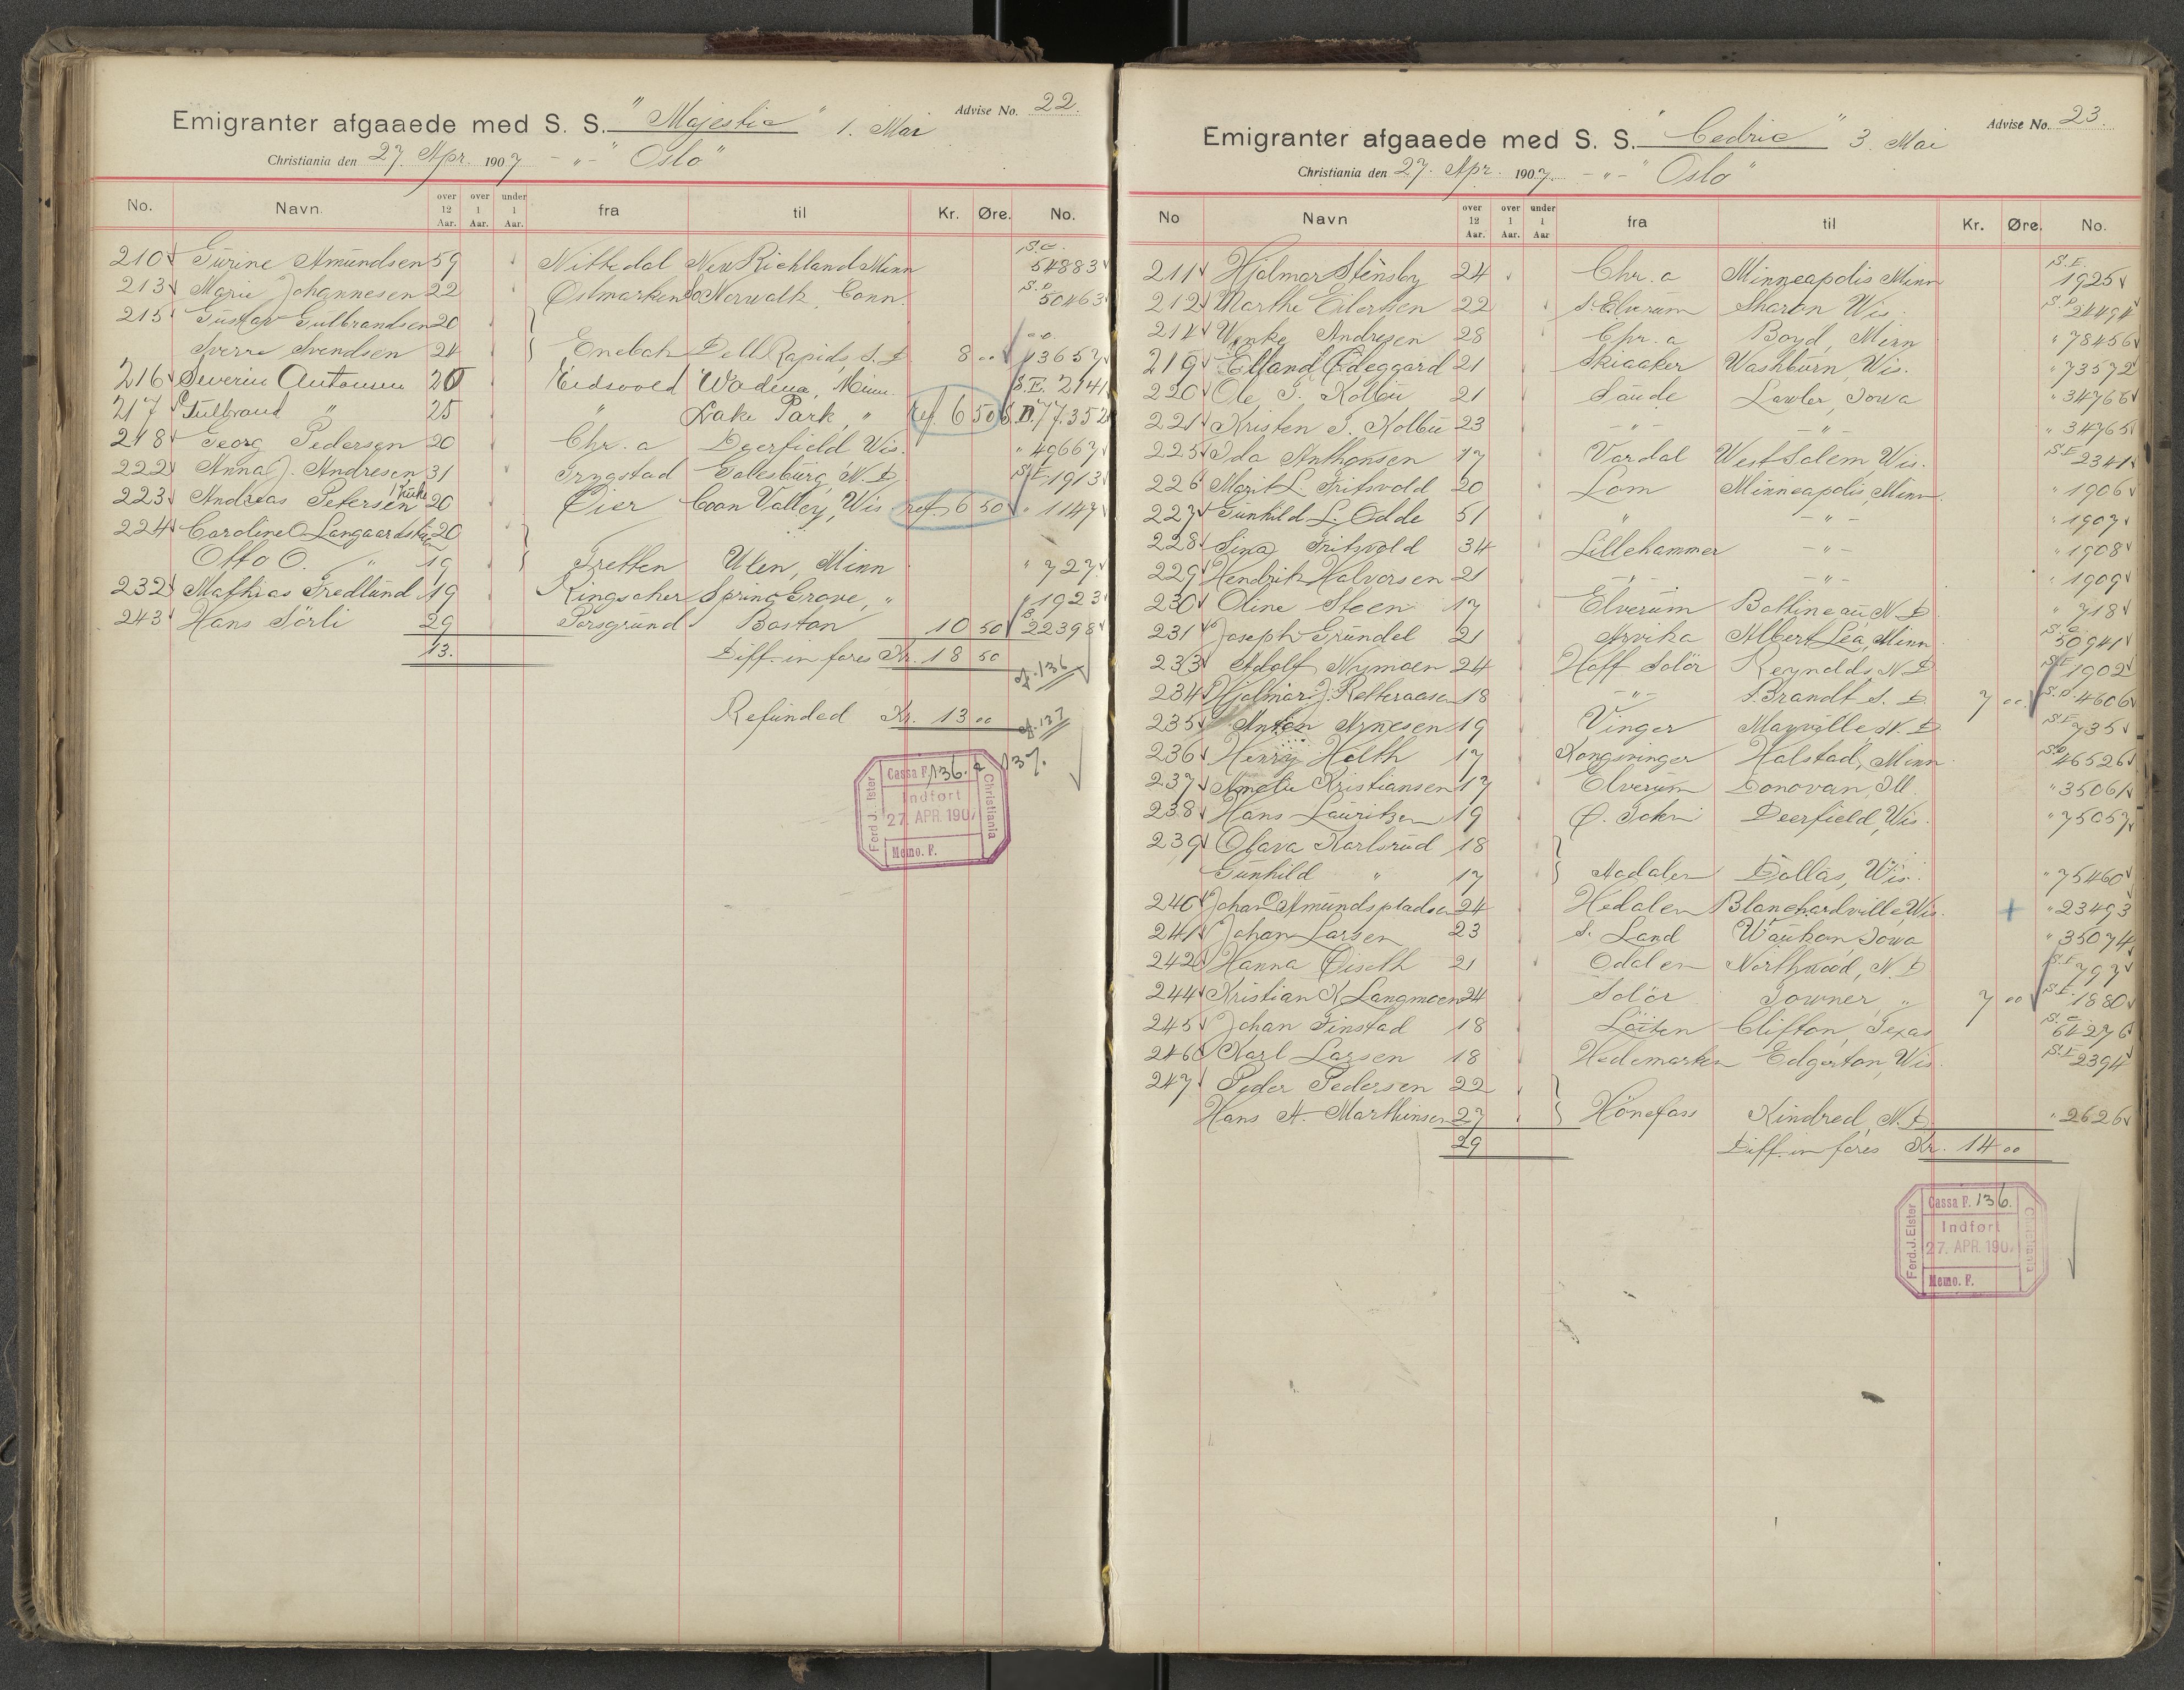 Advise No. 22.
Emigranter afgaaede med S. S. "Majestic" 1. Mai
Christiania den 27. Apr. 1907 -"- "Oslo"
No. Navn. over 12 Aar. over 1 Aar. under 1 Aar. fra til Kr. Øre. No.
210 Gurine Amundsen 59 Nittedal New Richland Minn S.C. 54883
213 Marie Johannesen 22 Østmarken So Norwalk, Conn. S.O. 50463
215 Gustav Gulbrandsen 20
Sverre Svendsen 24 Enebak Dell Rapids, S. D. 8 00 13657
216 Severin Antonsen 20 Eidsvold Wadena, Minn S.E. 2141
217 Gulbrand " 25 " Lake Park, " ref. 6 50 S.D. 77.352
218 Georg Pedersen 20 Chr.a Deerfield Wis. " 49667
222 Anna J. Andresen 31 Trygstad Galesburg, N. D. S.E. 1913
223 Andreas Petersen 20 Øier Coon Valley, Wis ref. 6 50 " 1147
224 Caroline O. Langaardstuen 20
Otto O. " 19 Tretten Ulen, Minn " 727
232 Mathias Fredlund 19 Kingscher Spring Grove, " " 1923
243 Hans Sörli 29 Porsgrund Boston 10 50 B 22398
13. Diff. in fares Kr. 18 50 cf. 136
Refunded Kr. 13 00 cf. 137
Cassa F. 136. & 137.
Indført
27. APR. 1907
Memo. F.
Ferd. J. Elster
Christiania
Advise No. 23.
Emigranter afgaaede med S. S. "Cedric" 3. Mai
Christiania den 27. Apr. 1907. -"- "Oslo"
No Navn over 12 Aar. over 1 Aar. under 1 Aar fra til Kr. Øre. No.
211 Hjalmar Stensby 24 Chr.a Minneapolis Minn S.E. 1925
212 Marthe Eilertsen 22 S. Elverum Sharon Wis. S.D. 24494
214 Wenke Andresen 28 Chr.a Boyd, Minn " 78456
219 Elland Ødeggard 21 Skiaaker Washburn, Wis. " 73572
220 Ole T. Kolbu 21 Saude Lawler, Iowa " 34766
221 Kristen T. Kolbu 23 -"- -"- " 34765
225 Ida Anthonsen 17 Vardal West Salem, Wis. S.E. 2341
226 Marit L. Fritsvold 20 Lom Minneapolis, Minn. " 1906
227 Gunhild L. Odde 51 " -"- " 1907
228 Lina Fritsvold 34 Lillehammer -"- " 1908
229 Hendrik Halvorsen 21 -"- -"- " 1909
230 Oline Steen 17 Elverum Bottineau, N. D. " 718
231 Joseph Gründel 21 Arvika Albert Lea, Minn. S.C. 50941
233 Adolf Nymoen 24 Hoff Solör Reynolds, N. D. S.E. 1902
234 Hjalmar J. Retteraasen 18 -"- Brandt S. D. 7 00 S.D. 4606
235 Anton Arnesen 19 Vinger Mayville N. D. S.E. 735
236 Henry Holth 17 Kongsvinger Halstad, Minn. S.D. 46526
237 Amelie Kristiansen 17 Elverum Donovan, Ill. " 35061
238 Hans Lauritzen 19 Ø. Toten Deerfield, Wis. " 75057
239 Olava Karlsrud 18
Gunhild " 17 Aadalen Dallas, Wis. " 75460
240 Johan O. Amundspladsen 24 Hedalen Blanchardville, Wis. + " 23493
241 Johan Larsen 23 S. Land Waukon, Iowa " 35074
242 Hanna Øiseth 21 Odalen Northwood, N. D. S.E. 797
244 Kristian K Langmoen 24 Solör Towner, " 7 00 S.E. 1880
245 Johan Finstad 18 Löiten Clifton, Texas S.C. 64276
246 Karl Larsen 18 Hedemarken Edgerton, Wis. S.E. 2394
247 Peder Pedersen 22
Hans A. Marthinsen 27 Hönefoss Kindred, N. D. " 2626
29 Diff. in fares Kr. 14 00
Cassa F. 136.
Indført
27. APR. 1907
Memo. F.
Ferd. J. Elster
Christiania